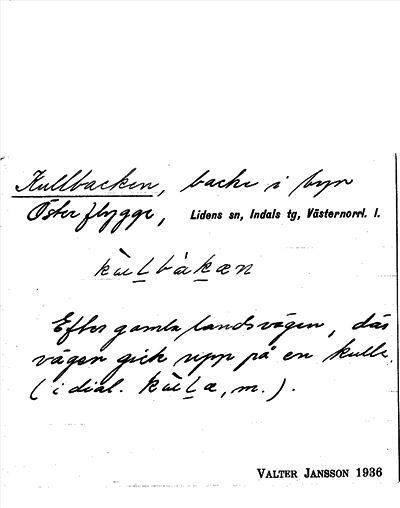 Kullbacken, backe i byn
Österflygge, Lidens sn, Indals tg, Västernorrl. l.
kùl̠bàk̠æn
Efter gamla landsvägen, där
vägen gick upp på en kulle.
(i dial. kùl̠a, m.).
VALTER JANSSON 1936